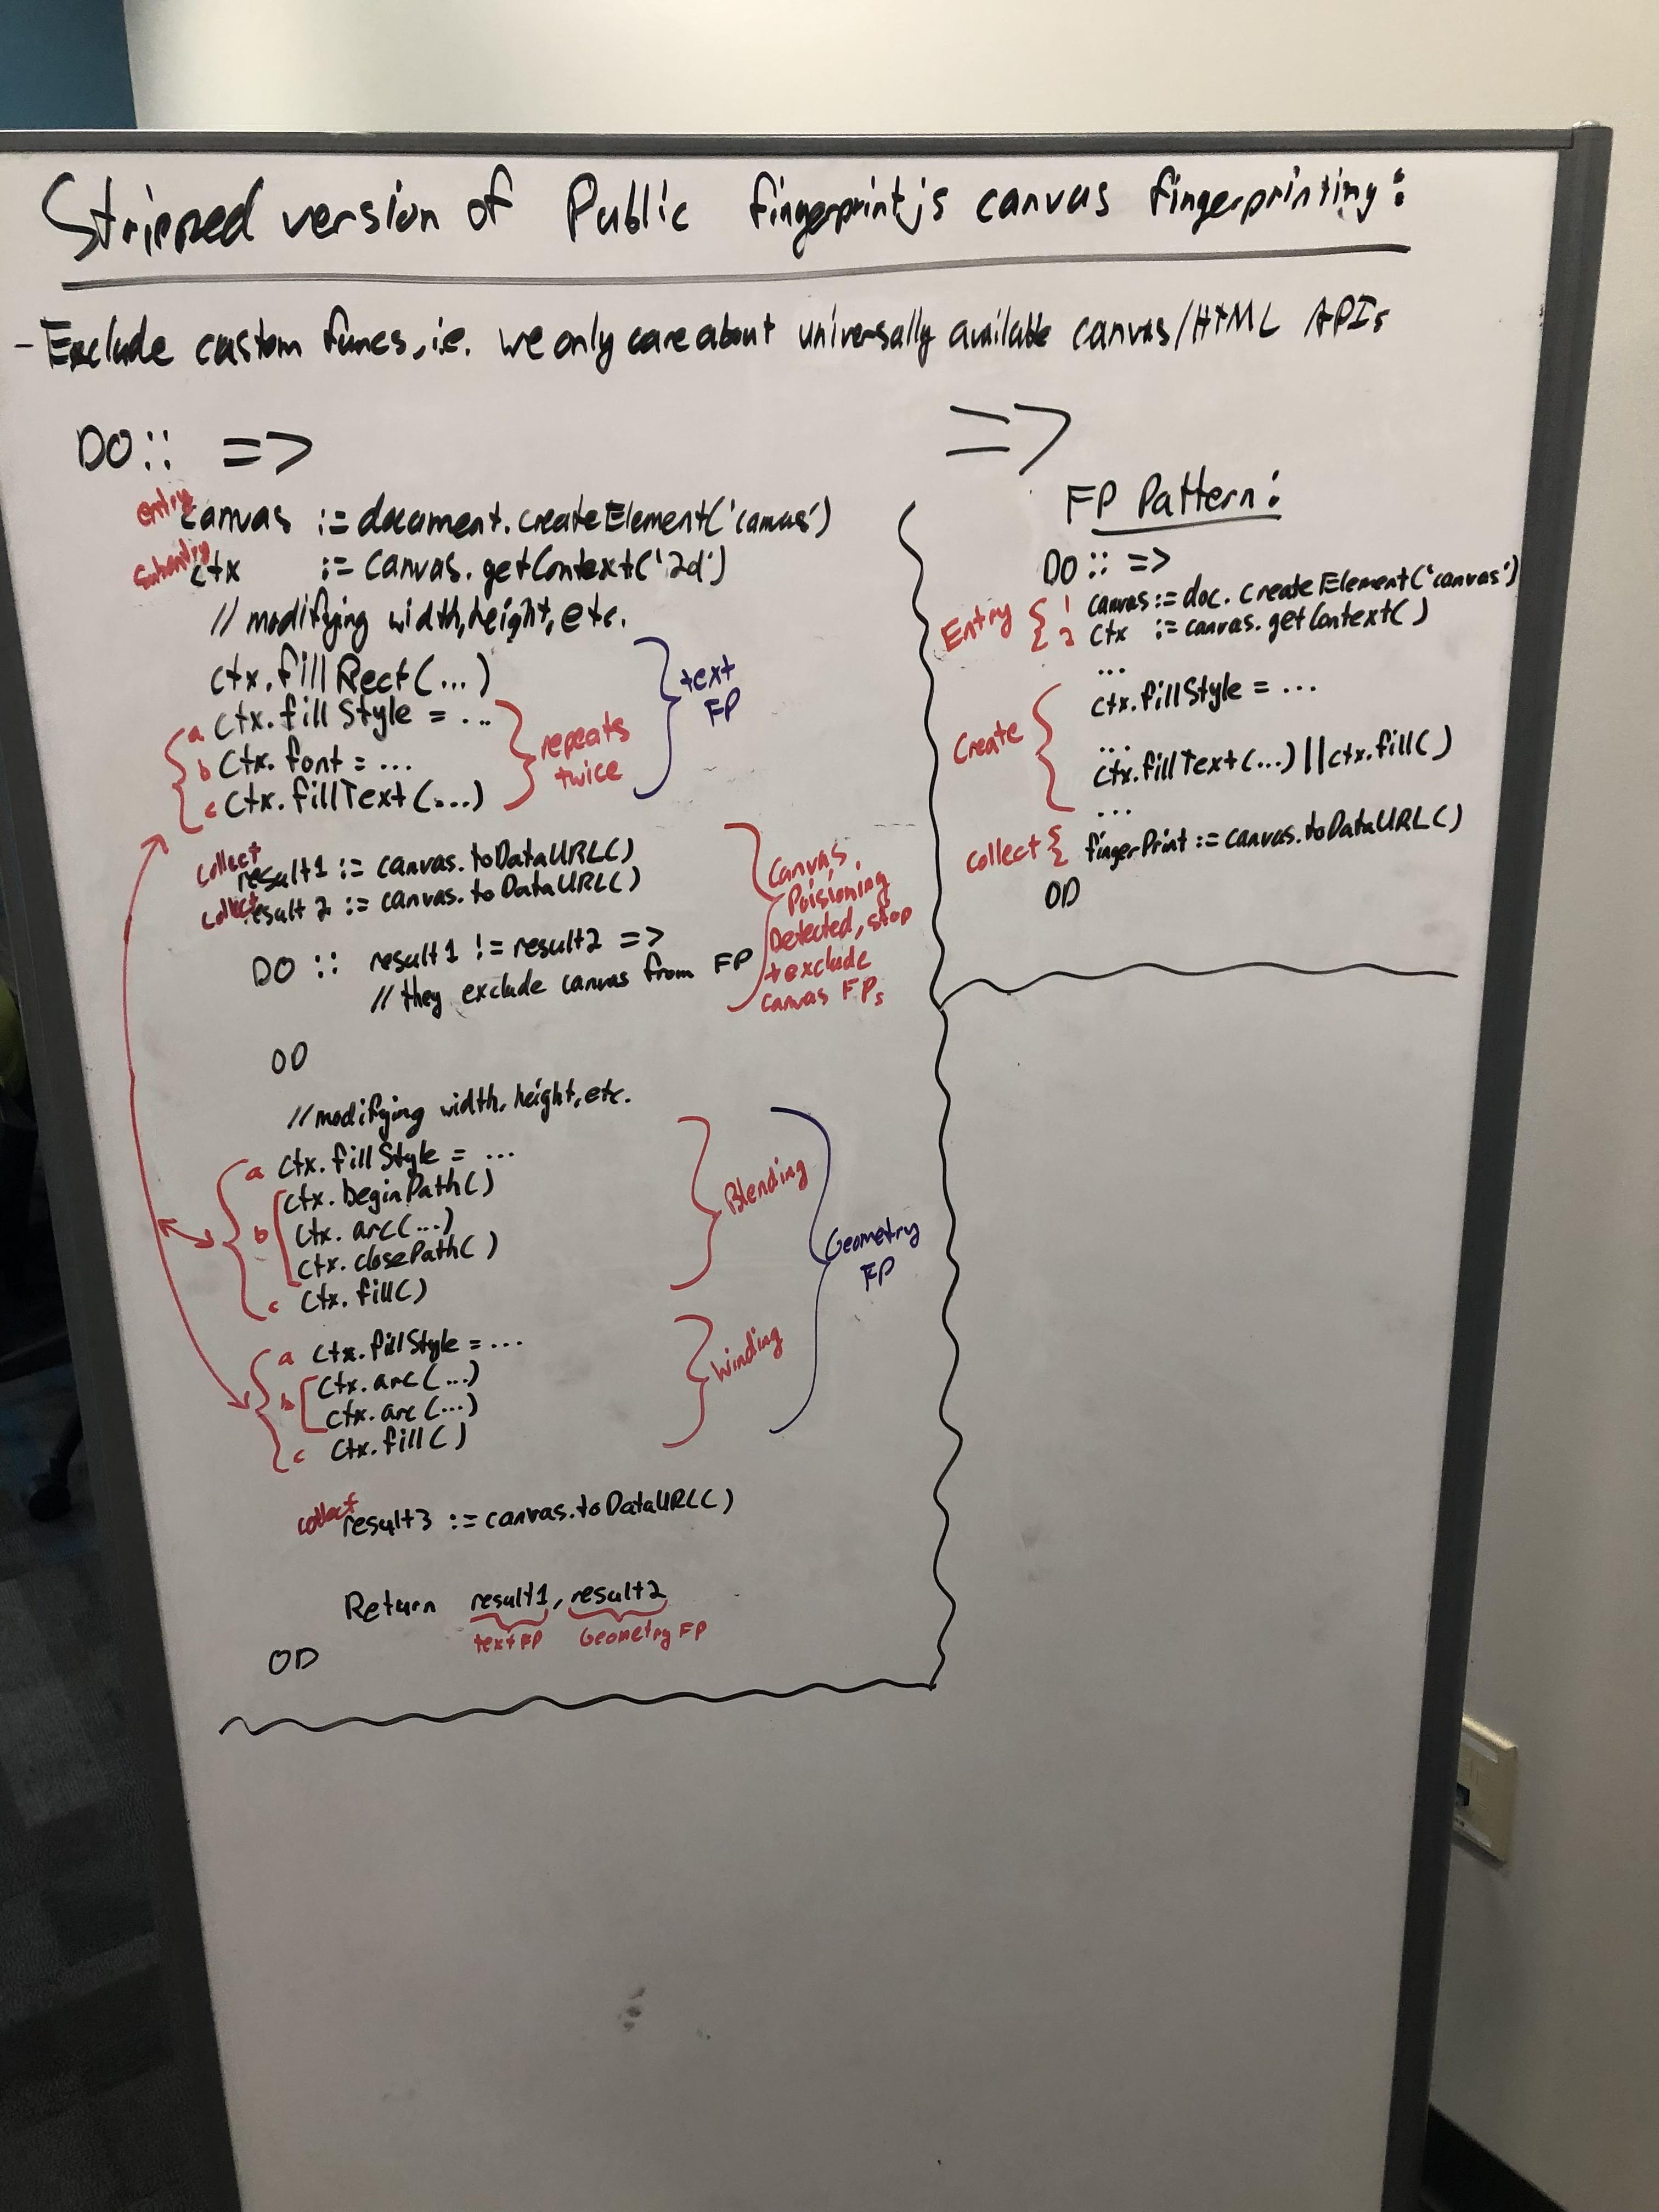 Stripped version of Public fingerprintjs canvas fingerprinting:
- Exclude custom funcs, i.e. we only care about universally available canvas/HTML APIs
DO :: =>
entry canvas := document.createElement('canvas')
subentry ctx := canvas.getContext('2d')
// modifying width, height, etc.
ctx.fillRect(...)
a ctx.fillStyle = ...
b ctx.font = ...
c ctx.fillText(...)
repeats
twice
text
FP
collect result1 := canvas.toDataURL()
collect result2 := canvas.toDataURL()
DO :: result1 != result2 =>
// they exclude canvas from FP
Canvas
Poisioning
Detected, stop
+ exclude
canvas FPs
OD
//modifying width, height, etc.
a ctx.fillStyle = ...
b ctx.beginPath()
ctx.arc(...)
ctx.closePath()
c ctx.fill()
Blending
Geometry
FP
a ctx.fillStyle = ...
b ctx.arc(...)
ctx.arc(...)
c ctx.fill()
Winding
collect result3 := canvas.toDataURL()
Return result1, result2
text FP Geometry FP
OD
=>
FP Pattern:
DO :: =>
Entry 1 canvas := doc.createElement('canvas')
2 ctx := canvas.getContext()
...
ctx.fillStyle = ...
Create ...
ctx.fillText(...) || ctx.fill()
...
collect fingerPrint := canvas.toDataURL()
OD